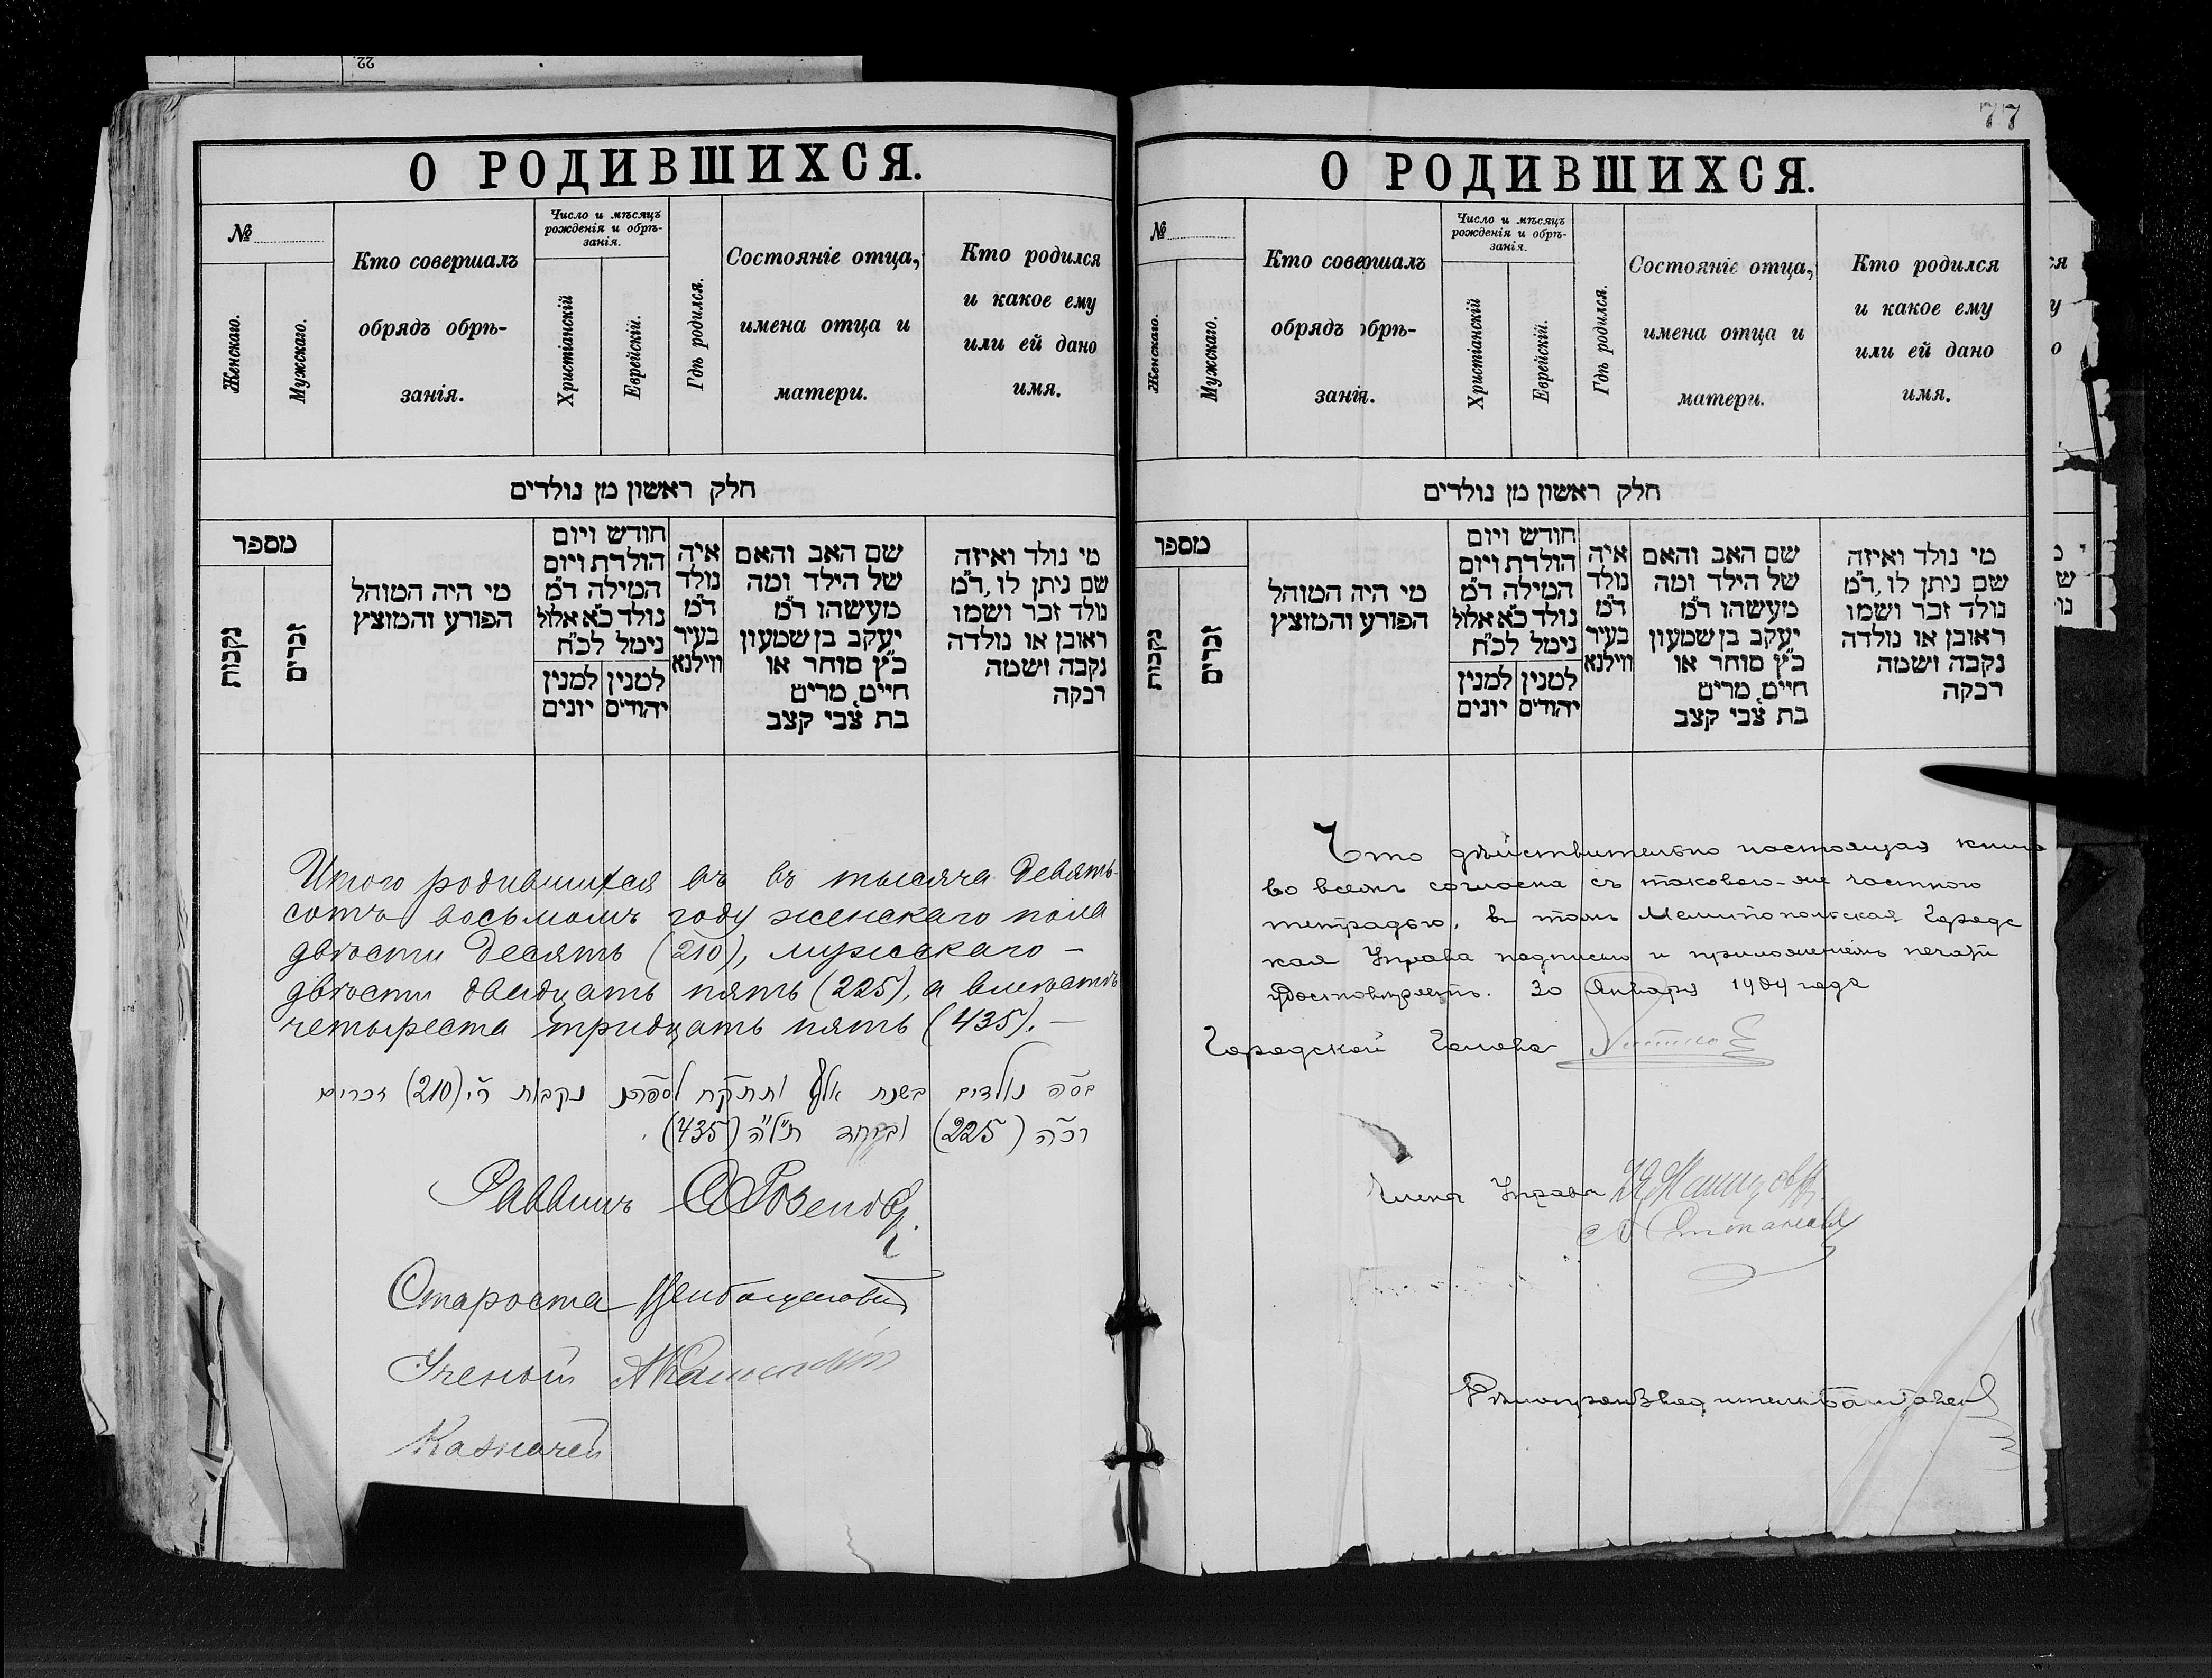 22
О РОДИВШИХСЯ.
№
Женскаго.
Мужскаго.
Кто совершалъ
обрядъ обрѣ-
занія.
Число и мѣсяцъ
рожденія и обрѣ-
занія.
Христіанскій
Еврейскій.
Гдѣ родился.
Состояніе отца,
имена отца и
матери.
Кто родился
и какое ему
или ей дано
имя.
חלק ראשון מן נולדים
מספר
נקבות
זכרים
מי היה המוהל
הפורע והמוצץ
חודש ויום
הולדת ויום
המילה ד"מ
נולד כ"א אלול
נימל לכ"ח
למנין יהודים
למנין יונים
איה
נולד
ד"מ
בעיר
ווילנא
שם האב והאם
של הילד ומה
מעשהו ד"מ
יעקב בן שמעון
כ"ץ סוחר או
חיים, מרים
בת צבי קצב
מי נולד ואיזה
שם ניתן לו, ד"מ
נולד זכר ושמו
ראובן או נולדה
נקבה ושמה
רבקה
Итого родившихся въ въ тысяча девять-
сотъ восьмомъ году женскаго пола
двѣсти десять (210), мужскаго –
двѣсти двадцать пять (225), а вмѣстѣ
четыреста тридцать пять (435). –
נולדים בשנת אלף נקבות ר"י (210) זכרים
רכ"ה (225) תל"ה (435).
Раввинъ
Староста
Ученый
Казначей
77
О РОДИВШИХСЯ.
№
Женскаго.
Мужскаго.
Кто совершалъ
обрядъ обрѣ-
занія.
Число и мѣсяцъ
рожденія и обрѣ-
занія.
Христіанскій
Еврейскій.
Гдѣ родился.
Состояніе отца,
имена отца и
матери.
Кто родился
и какое ему
или ей дано
имя.
חלק ראשון מן נולדים
מספר
נקבות
זכרים
מי היה המוהל
הפורע והמוצץ
חודש ויום
הולדת ויום
המילה ד"מ
נולד כ"א אלול
נימל לכ"ח
למנין יהודים
למנין יונים
איה
נולד
ד"מ
בעיר
ווילנא
שם האב והאם
של הילד ומה
מעשהו ד"מ
יעקב בן שמעון
כ"ץ סוחר או
חיים, מרים
בת צבי קצב
מי נולד ואיזה
שם ניתן לו, ד"מ
נולד זכר ושמו
ראובן או נולדה
נקבה ושמה
רבקה
Что дѣйствительно настоящая книга
во всемъ согласна съ таковою-же частного
тетрадью, въ томъ Мелитопольская Городс
кая Управа подписью и приложеніемъ печати
удостовѣряетъ. 30 Января 1909 года
Городской Голова
Члены Управы
Дѣлопроизводитель